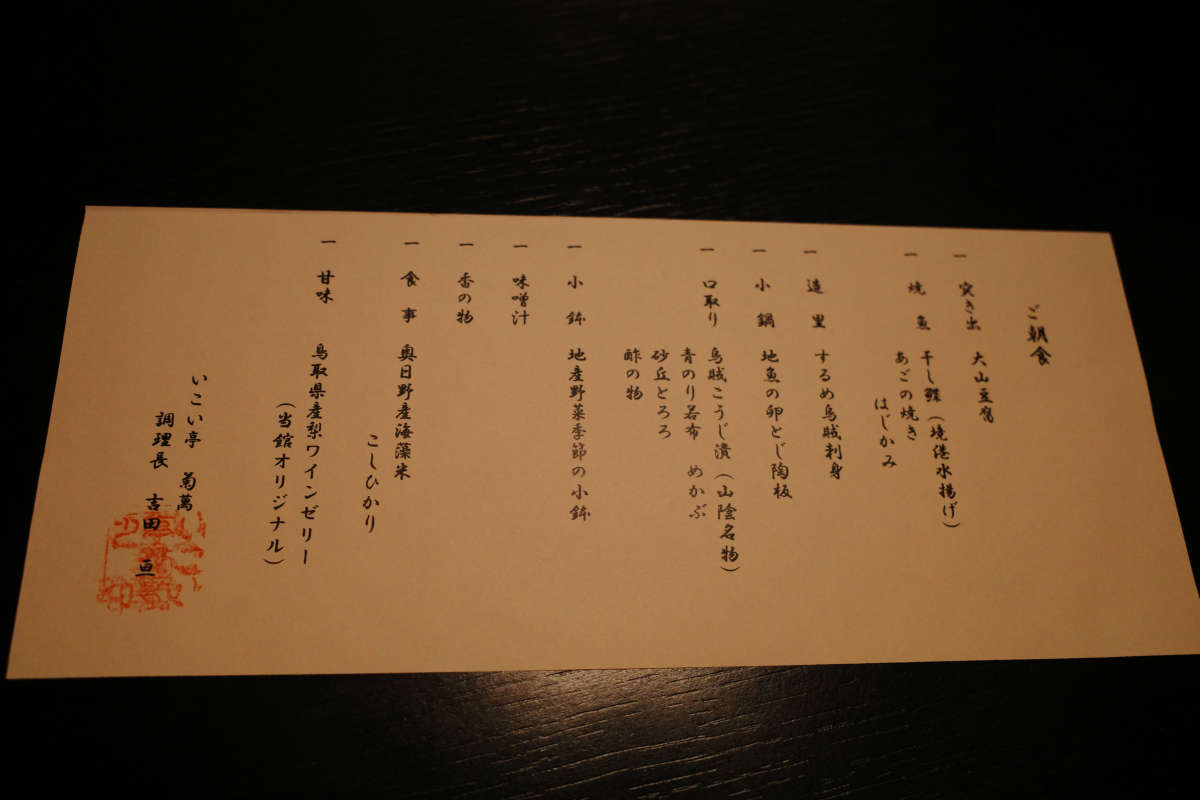 ご朝食
一 突き出 大山豆腐
一 焼魚 干し鰈（境港水揚げ）
あごの焼き
はじかみ
一 造里 するめ烏賊刺身
一 小鍋 地魚の卵とじ陶板
一 口取り 烏賊こうじ漬（山陰名物）
青のり若布 めかぶ
砂丘とろろ
酢の物
一 小鉢 地産野菜季節の小鉢
一 味噌汁
一 香の物
一 食事 奥日野産海藻米
こしひかり
一 甘味 鳥取県産梨ワインゼリー
（当館オリジナル）
いこい亭 菊萬
調理長 吉田 亘